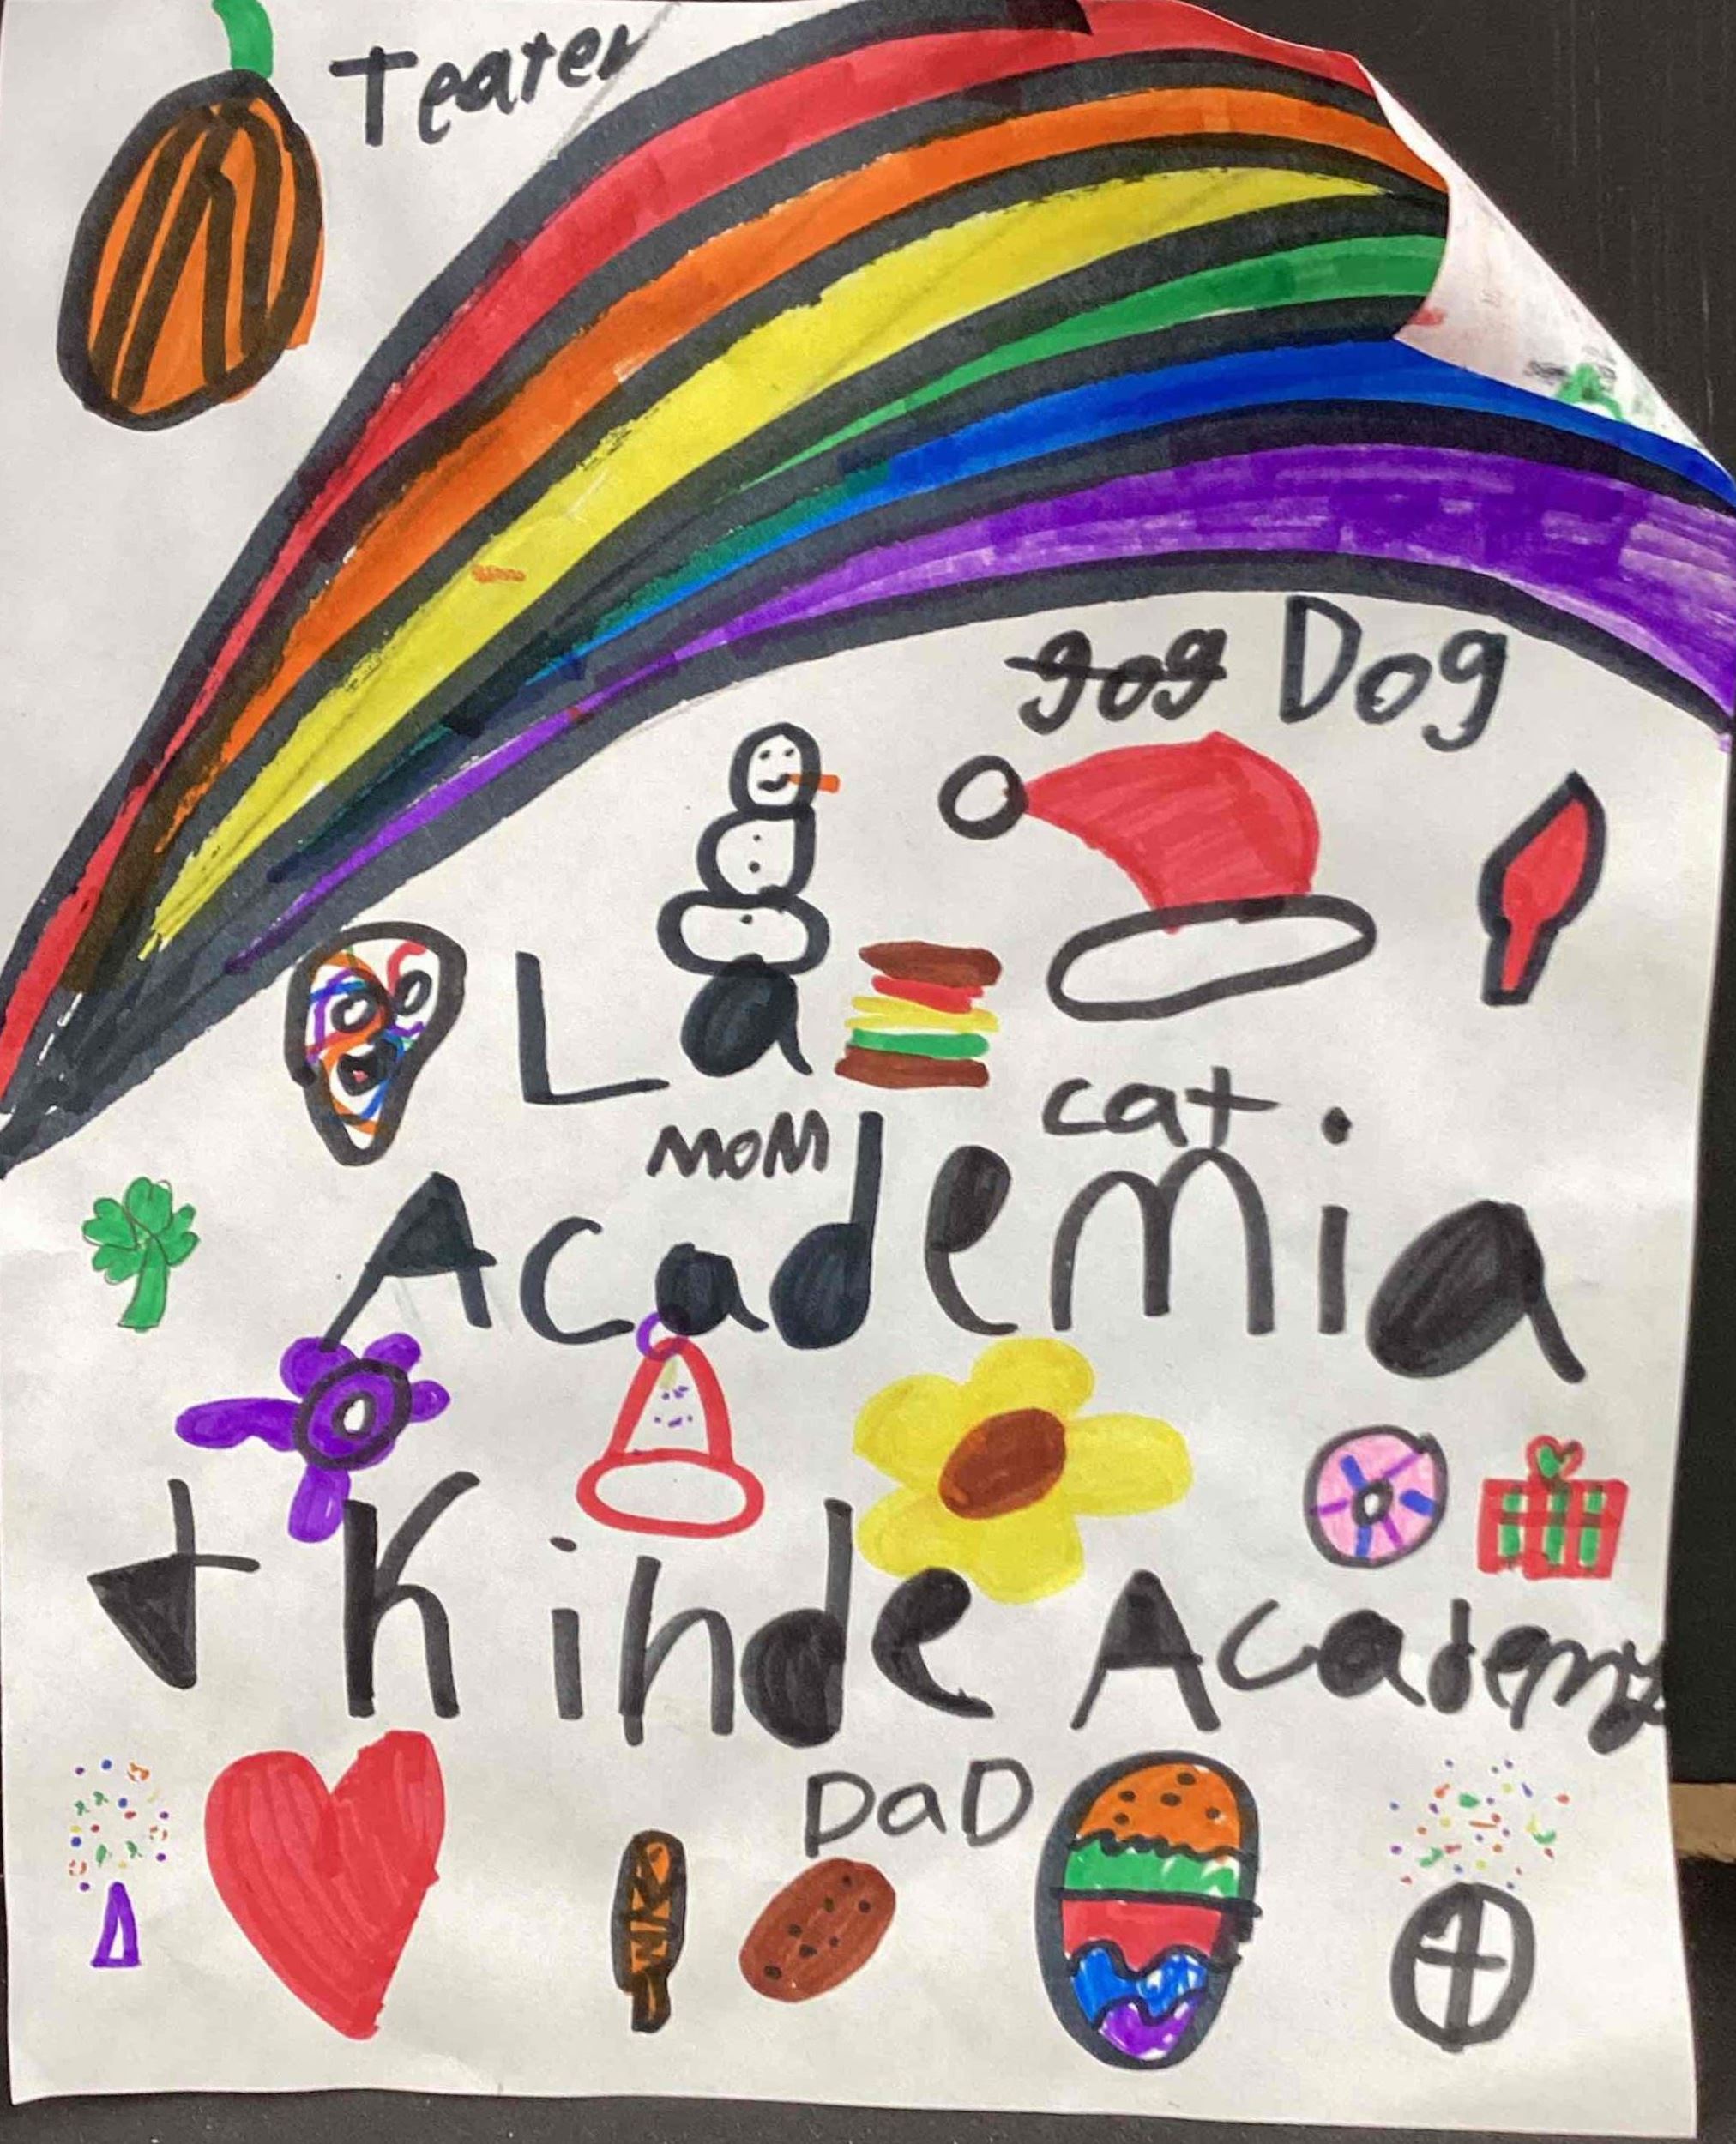 Teater
gog Dog
La
cat
MoM
Academia
Kinde Academy
DaD